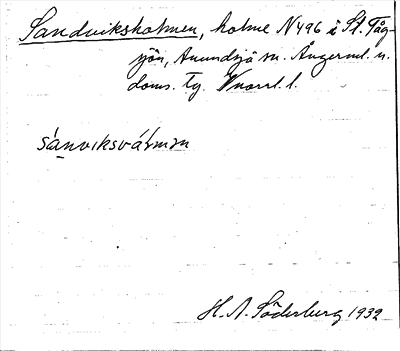 Sandviksholmen, holme N496 i St. Tåg-
sjön, Anundsjö sn. Ångerml. n.
doms. Tg. Vnorrl. l.
sánviksvármɘn
H. A. Söderberg 1932